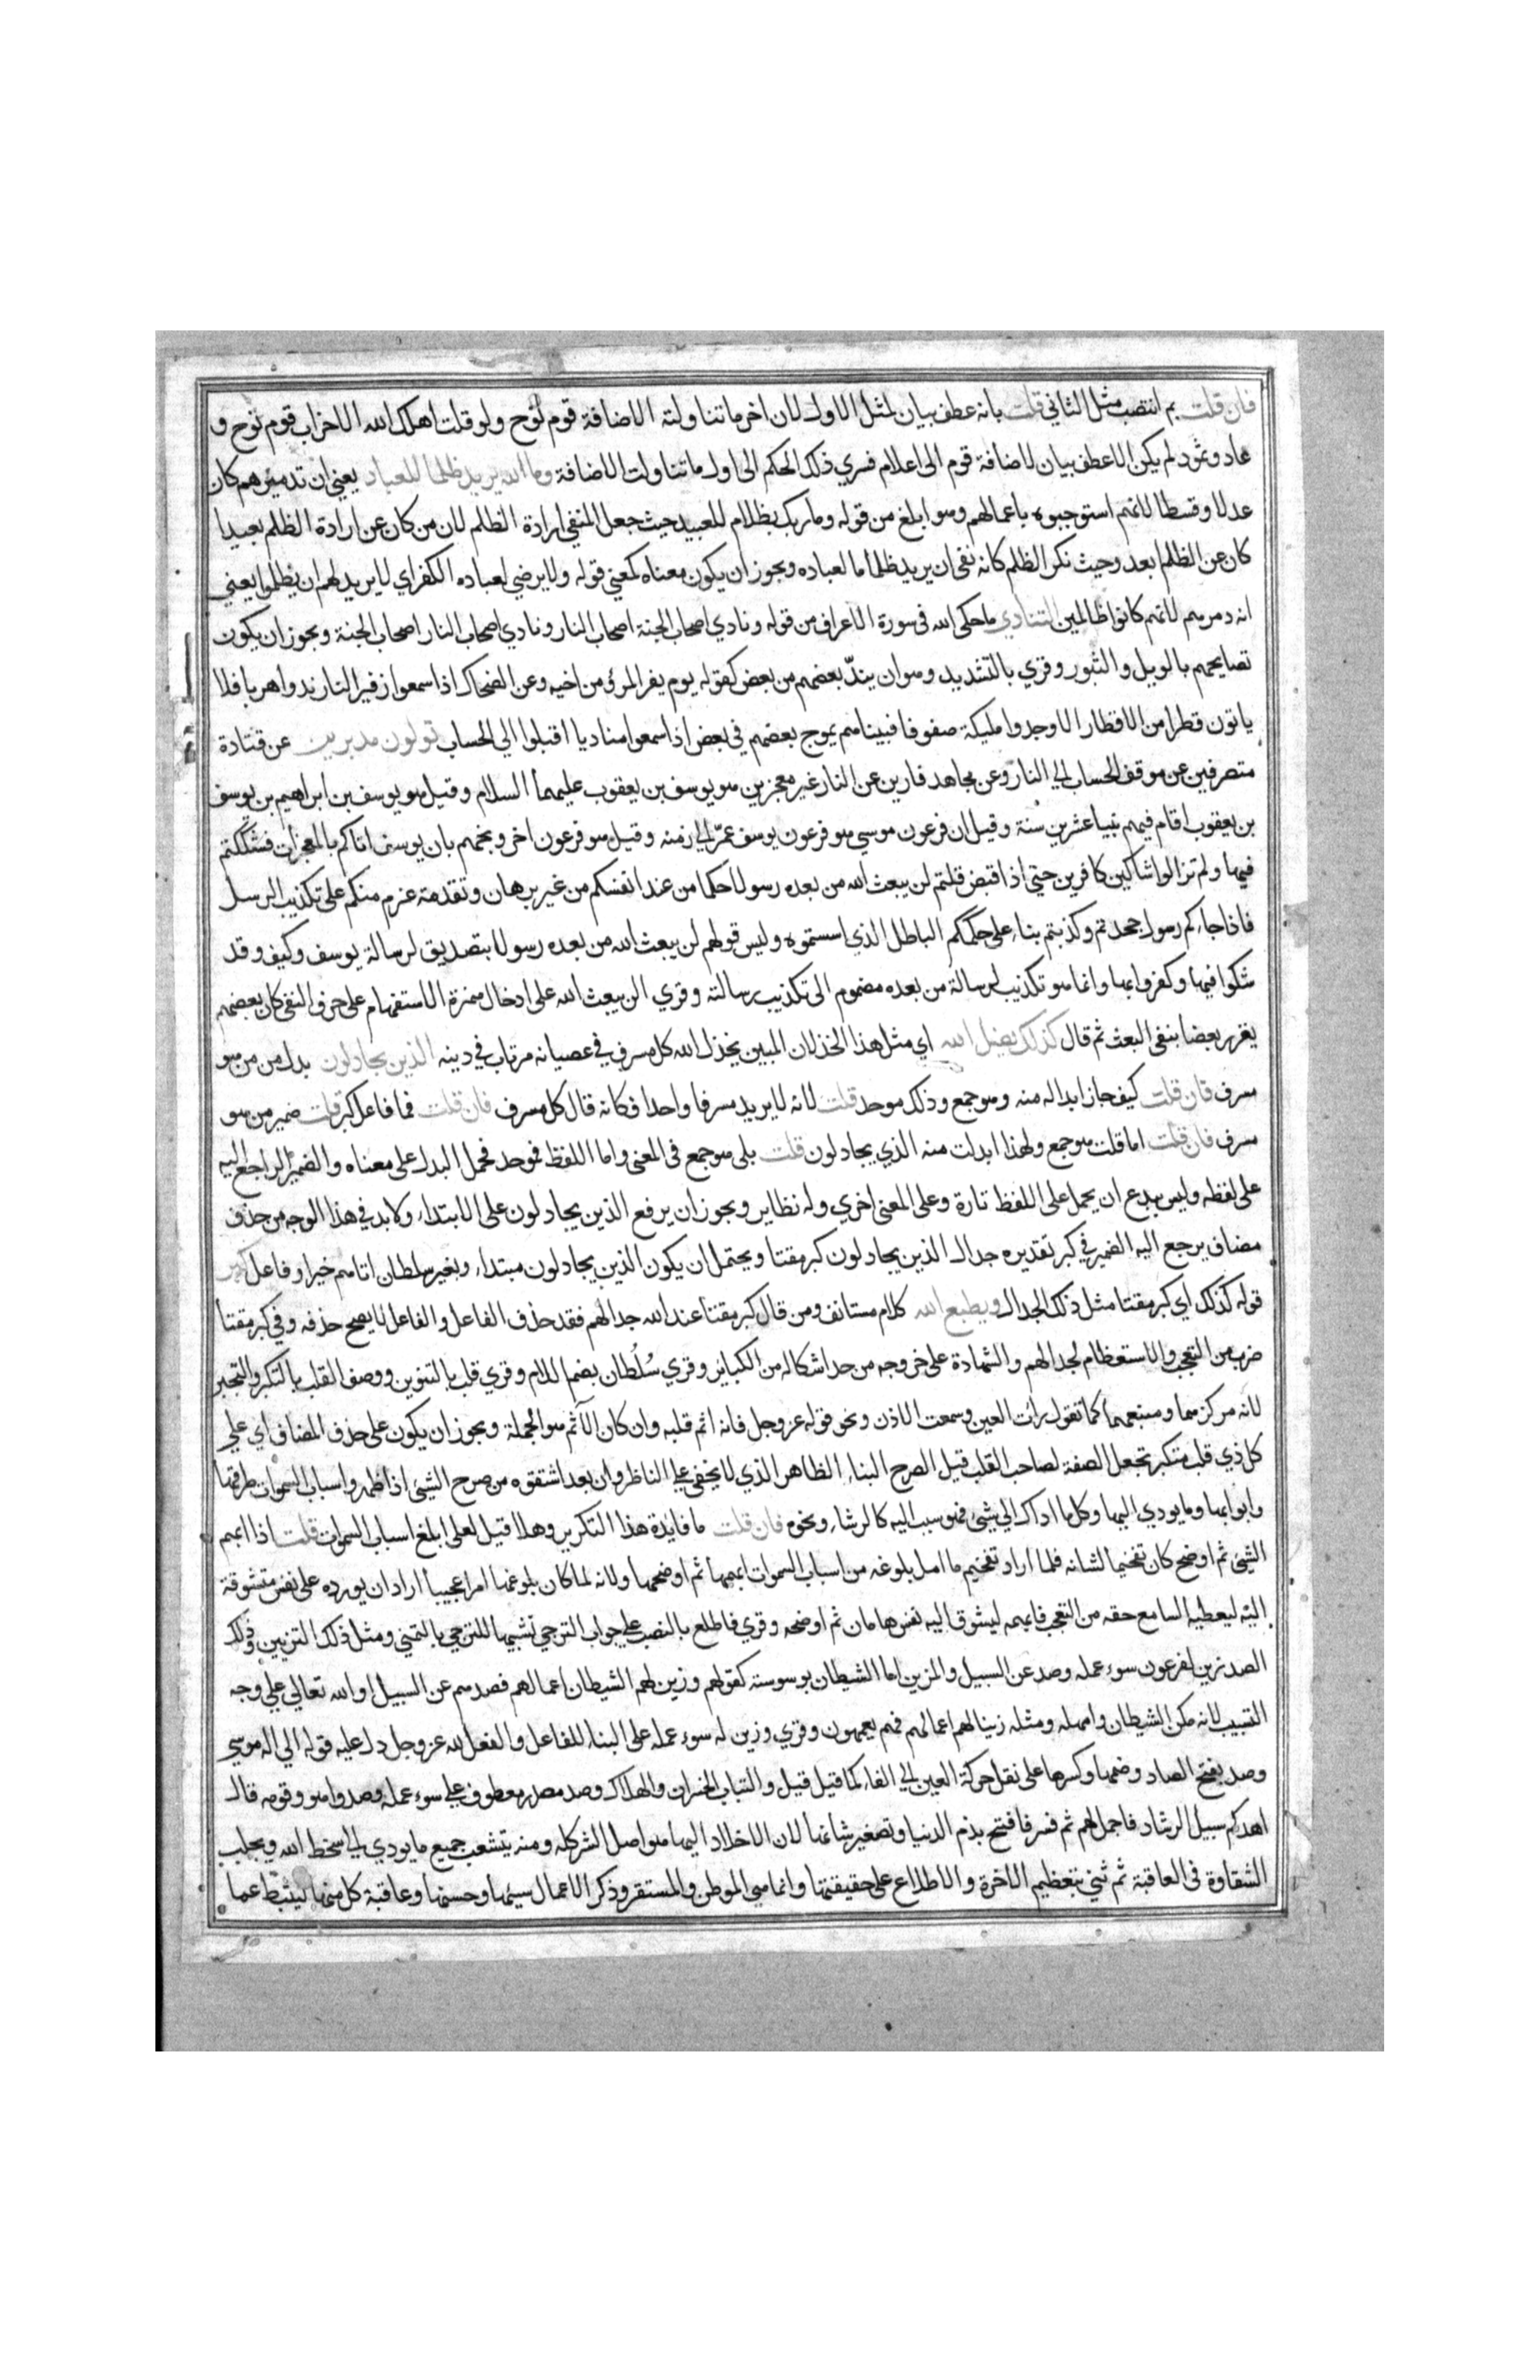 فان قلت بم انتصب مثل الثاني قلت بانه عطف بيان لمثل الاول لان اخر ما تناولته الاضافة قوم نوح ولو قلت اهلك الله الاحزاب قوم نوح و
عاد وثمود لم يكن الا عطف بيان لاضافة قوم الى اعلام فسري ذلك الحكم الى اول ما تناولت الاضافة وما الله يريد ظلما للعباد يعني ان تدميرهم كان
عدلا وقسطا لانهم استوجبوه باعمالهم وهو ابلغ من قوله وما ربك بظلام للعبيد حيث جعل المنفي ارادة الظلم لان من كان عن ارادة الظلم بعيدا
كان عن الظلم ابعد وحيث نكر الظلم كانه نفى ان يريد ظلما ما لعباده ويجوز ان يكون معناه كمعني قوله ولا يرضي لعباده الكفر اي لا يريد لهم ان يظلموا يعني
انه دمرهم لانهم كانوا ظالمين التنادي ما حكى الله في سورة الاعراف من قوله ونادي اصحاب الجنة اصحاب النار ونادي اصحاب النار اصحاب الجنة ويجوز ان يكون
تصايحهم بالويل والثبور وقري بالتشديد وهو ان يندّ بعضهم من بعض كقوله يوم يفر المرؤ من اخيه وعن الضحاك اذا سمعوا زفير النار ندوا هربا فلا
ياتون قطرا من الاقطار الا وجدوا مليكة صفوفا فبيناهم يموج بعضهم في بعض اذا سمعوا مناديا اقبلوا الي الحساب تولون مدبرين عن قتادة
منصرفين عن موقف الحساب الي النار وعن مجاهد فارين عن النار غير معجزين هو يوسف بن يعقوب عليهما السلام وقيل هو يوسف بن ابراهيم بن يوسف
بن يعقوب اقام فيهم نبيا عشرين سنة وقيل ان فرعون موسي هو فرعون يوسف عمّر الي زمنه وقيل هو فرعون اخر وبخهم بان يوسف اتاكم بالمعجزات فشككتم
فيها ولم تزالوا شاكين كافرين حتي اذا قبض قلتم لن يبعث الله من بعده رسولا حكما من عند انفسكم من غير برهان وتقدمة عزم منكم على تكذيب الرسل
فاذا جاءكم رسول جحدتم وكذبتم بناء على حكمكم الباطل الذي اسستموه وليس قولهم لن يبعث الله من بعده رسولا بتصديق لرسالة يوسف وكيف وقد
شكوا فيها وكفروا بها وانما هو تكذيب لرسالة من بعده مضموم الى تكذيب رسالته وقري الن يبعث الله على ادخال همزة الاستفهام على حرف النفي كان بعضهم
يقرر بعضا بنفي البعث ثم قال كذلك يضل الله اي مثل هذا الخذلان المبين يخذل الله كل مسرف في عصيانه مرتاب في دينه الذين يجادلون بدل من من هو
مسرف فان قلت كيف جاز ابداله منه وهو جمع وذلك موحد قلت لانه لا يريد مسرفا واحدا فكانه قال كل مسرف فان قلت فما فاعل كبر قلت ضمير من هو
مسرف فان قلت اما قلت هو جمع ولهذا ابدلت منه الذي يجادلون قلت بلى هو جمع في المعنى واما اللفظ فموحد فحمل البدل على معناه والضمير الراجع اليه
على لفظه وليس ببدع ان يحمل على اللفظ تارة وعلى المعنى اخري وله نظاير ويجوز ان يرفع الذين يجادلون على الابتداء ولا بد في هذا الوجه من حذف
مضاف يرجع اليه الضمير في كبر تقديره جدال الذين يجادلون كبر مقتا ويحتمل ان يكون الذين يجادلون مبتداء وبغير سلطان اتاهم خبرا وفاعل كبر
قوله كذلك اي كبر مقتا مثل ذلك الجدال ويطبع الله كلام مستانف ومن قال كبر مقتا عند الله جدالهم فقد حذف الفاعل والفاعل لا يصح حذفه وفي كبر مقتا
ضرب من التعجب والاستعظام لجدالهم والشهادة على خروجه من حد اشكاله من الكباير وقري سُلُطان بضم اللام وقري قلب بالتنوين ووصف القلب بالتكبر والتجبر
لانه مركزهما ومنبعهما كما تقول رات العين وسمعت الاذن ونحو قوله عز وجل فانه اثم قلبه وان كان الآثم هو الجملة ويجوز ان يكون على حذف المضاف اي علي
كل ذي قلب متكبر تجعل الصفة لصاحب القلب قيل الصرح البناء الظاهر الذي لا يخفي علي الناظر وان بعد اشتقوه من صرح الشيئ اذا ظهر واسباب السموات طرقها
وابوابها وما يودي اليها وكل ما اداك الي شيئ فهو سبب اليه كالرشاء ونحوه فان قلت ما فايدة هذا التكرير وهلا قيل لعلى ابلغ اسباب السموات قلت اذا ابهم
الشيئ ثم اوضح كان تفخيما لشانه فلما اراد تفخيم ما امل بلوغه من اسباب السموات ابهمها ثم اوضحها ولانه لما كان بلوغها امرا عجيبا اراد ان يورده على نفس متشوقة
اليه ليعطيه السامع حقه من التعجب فابهمه ليشوق اليه نفس هامان ثم اوضحه وقري فاطلع بالنصب علي جواب الترجي تشبيها للترجي بالتمني ومثل ذلك التزيين وذلك
الصد زين لفرعون سوء عمله وصد عن السبيل والمزين اما الشيطان بوسوسته كقولهم وزين لهم الشيطان اعمالهم فصدهم عن السبيل او الله تعالي علي وجه
التسبيب لانه مكن الشيطان وامهله ومثله زينا لهم اعمالهم فهم يعمهون وقري وزين له سوء عمله على البناء للفاعل والفعل لله عز وجل دل عليه قوله الي اله موسي
وصد بفتح الصاد وضمها وكسرها على نقل حركة العين الي الفاء كما قيل قيل والتباب الخسران والهلاك وصد مصدر معطوف علي سوء عمله وصدوا هو وقومه قال
اهدكم سبيل الرشاد فاجمل لهم ثم فسر فافتتح بذم الدنيا وتصغير شانها لان الاخلاد اليها هو اصل الشر كله ومنه يتشعب جميع ما يودي الي سخط الله ويجلب
الشقاوة في العاقبة ثم ثني بتعظيم الاخرة والاطلاع على حقيقتها وانها هي الموطن والمستقر وذكر الاعمال سيئها وحسنها وعاقبة كل منها ليثبط عما